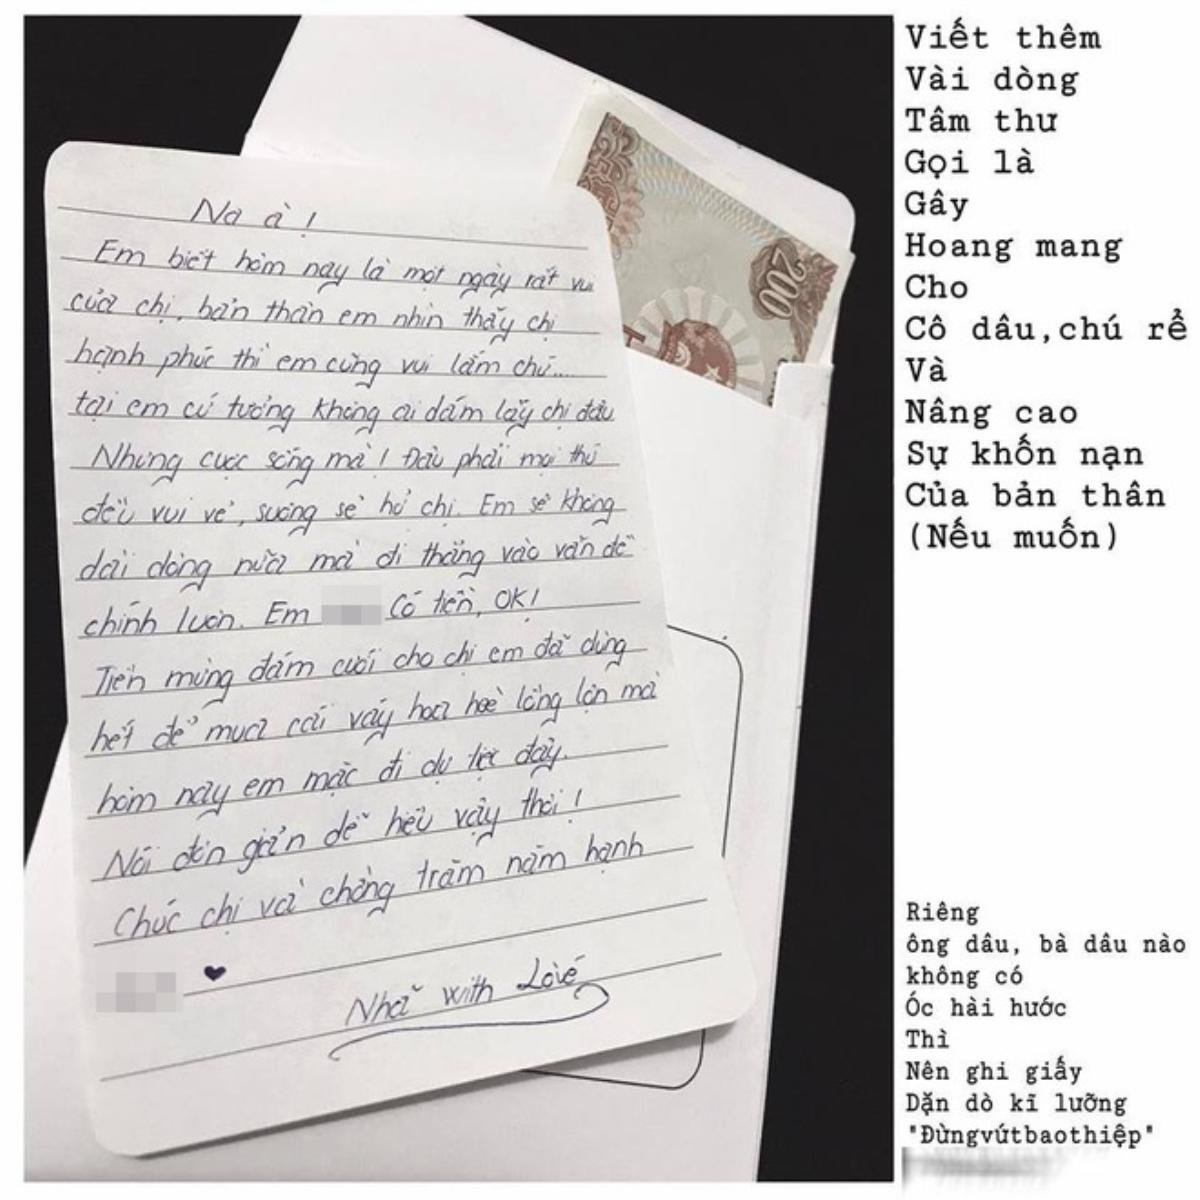 Na à!
Em biết hôm nay là một ngày rất vui
của chị, bản thân em nhìn thấy chị
hạnh phúc thì em cũng vui lắm chứ....
tại em cứ tưởng không ai dám lấy chị đâu
Nhưng cuộc sống mà! Đâu phải mọi thứ
đều vui vẻ, sướng sẽ hở chị. Em sẽ không
dài dòng nữa mà đi thẳng vào vấn đề
chính luôn. Em Có tiền, OK!
Tiền mừng đám cưới cho chị em đã dùng
hết để mua cái váy hoa hoè lồng lộn mà
hôm nay em mặc đi dự tiệc đấy.
Nói đơn giản dễ hiểu vậy thôi!
Chúc chị và chồng trăm năm hạnh
Nhã with Love
200
Viết thêm
Vài dòng
Tâm thư
Gọi là
Gây
Hoang mang
Cho
Cô dâu,chú rể
Và
Nâng cao
Sự khốn nạn
Của bản thân
(Nếu muốn)
Riêng
ông dâu, bà dâu nào
không có
Óc hài hước
Thì
Nên ghi giấy
Dặn dò kĩ lưỡng
"Đừngvứtbaothiệp"